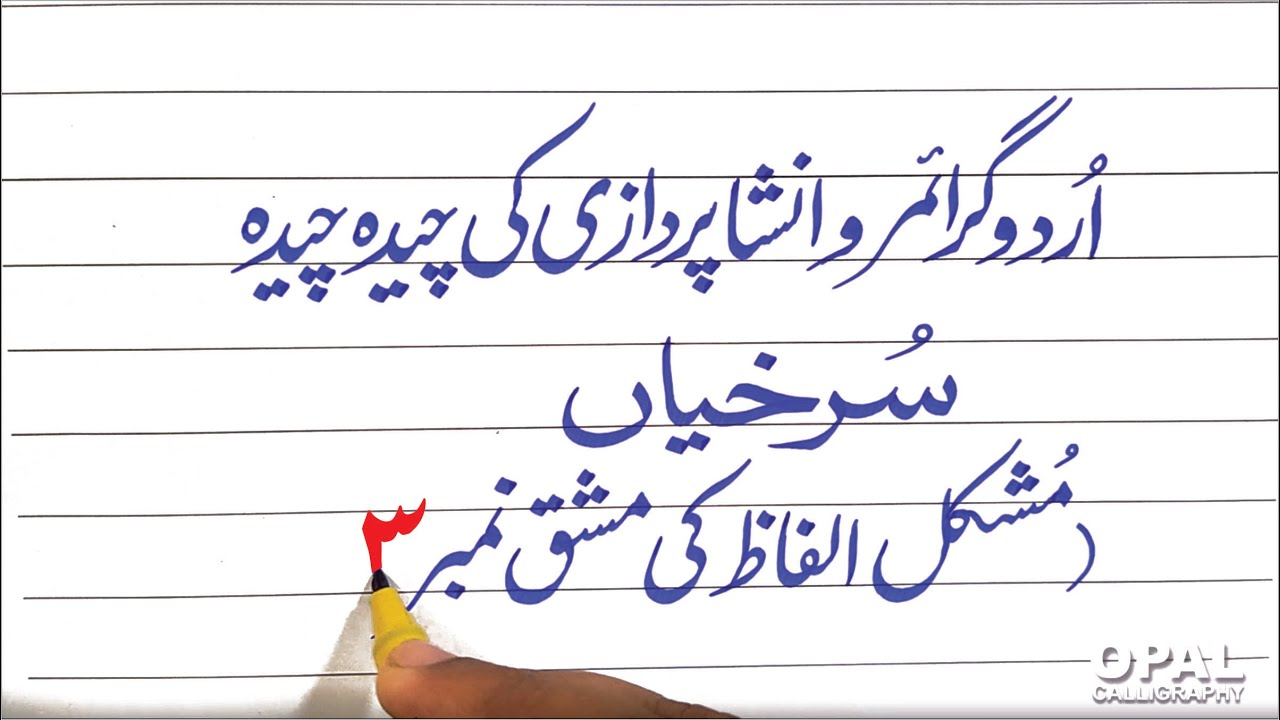 اُردو گرائمر و انشا پردازی کی چیدہ چیدہ
سُرخیاں
(مُشکل الفاظ کی مشق نمبر ۳
OPAL
CALLIGRAPHY